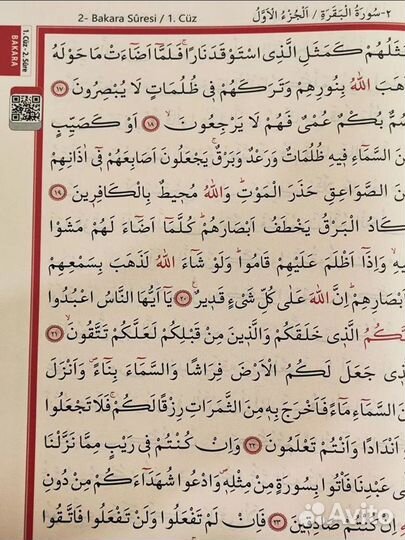 2- Bakara Sûresi / 1. Cüz
٢- سُورَةُ الْبَقَرَةِ / اَلْجُزْءُ الْاَوَّلُ
1. Cüz - 2. Sûre
BAKARA
مَثَلُهُمْ كَمَثَلِ الَّذِي اسْتَوْقَدَ نَارًاۚ فَلَمَّٓا اَضَٓاءَتْ مَا حَوْلَهُ
هَبَ اللّٰهُ بِنُورِهِمْ وَتَرَكَهُمْ ف۪ي ظُلُمَاتٍ لَا يُبْصِرُونَ ﴿١٧﴾
مٌّ بُكْمٌ عُمْيٌ فَهُمْ لَا يَرْجِعُونَۙ ﴿١٨﴾ اَوْ كَصَيِّبٍ
نَ السَّمَٓاءِ ف۪يهِ ظُلُمَاتٌ وَرَعْدٌ وَبَرْقٌۚ يَجْعَلُونَ اَصَابِعَهُمْ ف۪ٓي اٰذَانِهِمْ
نَ الصَّوَاعِقِ حَذَرَ الْمَوْتِۜ وَاللّٰهُ مُح۪يطٌ بِالْكَافِر۪ينَ ﴿١٩﴾
كَادُ الْبَرْقُ يَخْطَفُ اَبْصَارَهُمْۜ كُلَّمَٓا اَضَٓاءَ لَهُمْ مَشَوْا
يهِۙ وَاِذَٓا اَظْلَمَ عَلَيْهِمْ قَامُواۜ وَلَوْ شَٓاءَ اللّٰهُ لَذَهَبَ بِسَمْعِهِمْ
اَبْصَارِهِمْۜ اِنَّ اللّٰهَ عَلٰى كُلِّ شَيْءٍ قَد۪يرٌ۟ ﴿٢٠﴾ يَٓا اَيُّهَا النَّاسُ اعْبُدُوا
بَّكُمُ الَّذ۪ي خَلَقَكُمْ وَالَّذ۪ينَ مِنْ قَبْلِكُمْ لَعَلَّكُمْ تَتَّقُونَۙ ﴿٢١﴾
ذ۪ي جَعَلَ لَكُمُ الْاَرْضَ فِرَاشًا وَالسَّمَٓاءَ بِنَٓاءًۖ وَاَنْزَلَ
نَ السَّمَٓاءِ مَٓاءً فَاَخْرَجَ بِه۪ مِنَ الثَّمَرَاتِ رِزْقًا لَكُمْۚ فَلَا تَجْعَلُوا
هِ اَنْدَادًا وَاَنْتُمْ تَعْلَمُونَ ﴿٢٢﴾ وَاِنْ كُنْتُمْ ف۪ي رَيْبٍ مِمَّا نَزَّلْنَا
لٰى عَبْدِنَا فَأْتُوا بِسُورَةٍ مِنْ مِثْلِه۪ۖ وَادْعُوا شُهَدَٓاءَكُمْ مِنْ دُونِ
هِ اِنْ كُنْتُمْ صَادِق۪ينَ ﴿٢٣﴾ فَاِنْ لَمْ تَفْعَلُوا وَلَنْ تَفْعَلُوا فَاتَّقُوا
Avito